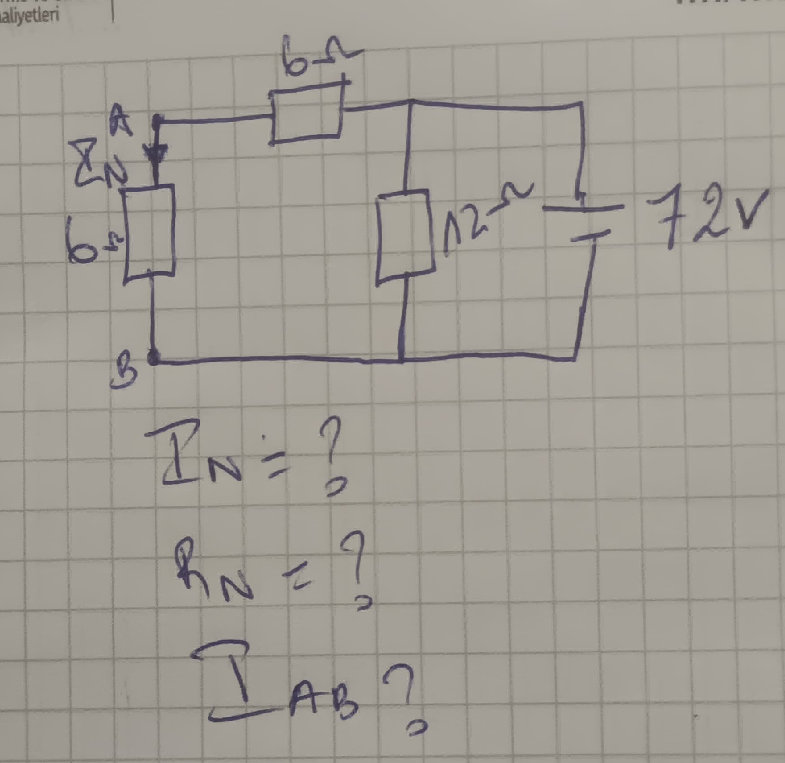 aliyetleri
6Ω
A
I_N
6Ω
12Ω
72V
B
I_N = ?
R_N = ?
I_AB ?